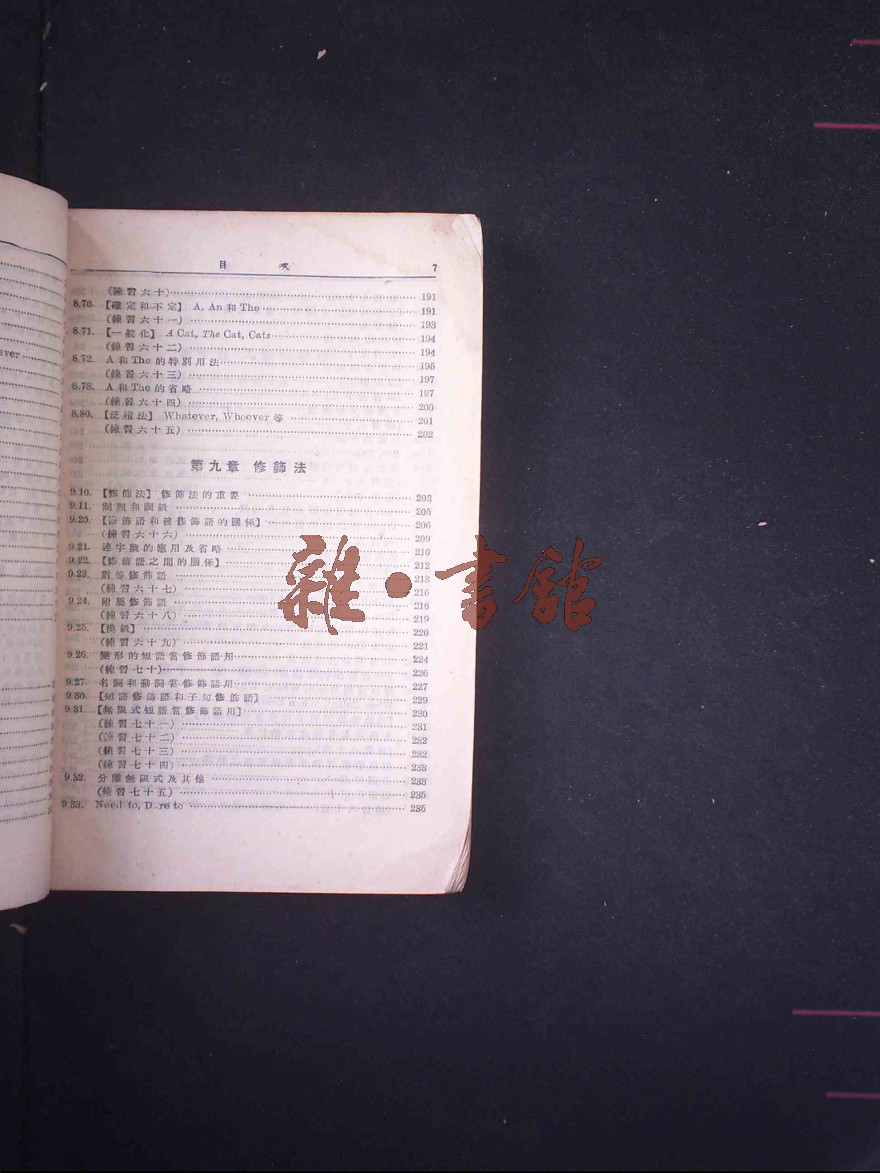 ever
目 次 7
(練習六十) 191
8.70. 【確定和不定】 A, An 和 The 191
(練習六十一) 193
8.71. 【一般化】 A Cat, The Cat, Cats 194
(練習六十二) 194
8.72. A 和 The 的特別用法 195
(練習六十三) 197
8.73. A 和 The 的省略 197
(練習六十四) 200
8.80. 【泛稱法】 Whatever, Whoever 等 201
(練習六十五) 202
第九章 修飾法
9.10. 【修飾法】 修飾法的重要 203
9.11. 詞類和詞級 205
9.20. 【修飾語和被修飾語的關係】 206
(練習六十六) 209
9.21. 連字號的應用及省略 210
9.22. 【修飾語之間的關係】 212
9.23. 對等修飾語 213
(練習六十七) 216
9.24. 附屬修飾語 216
(練習六十八) 219
9.25. 【換級】 220
(練習六十九) 221
9.26. 變形的短語當修飾語用 224
(練習七十) 226
9.27. 名詞和動詞當修飾語用 227
9.30. 【短語修飾語和子句修飾語】 229
9.31. 【無限式短語當修飾語用】 230
(練習七十一) 231
(練習七十二) 232
(練習七十三) 232
(練習七十四) 233
9.32. 分離無限式及其他 233
(練習七十五) 235
9.33. Need to, Dare to 235
雜·書館